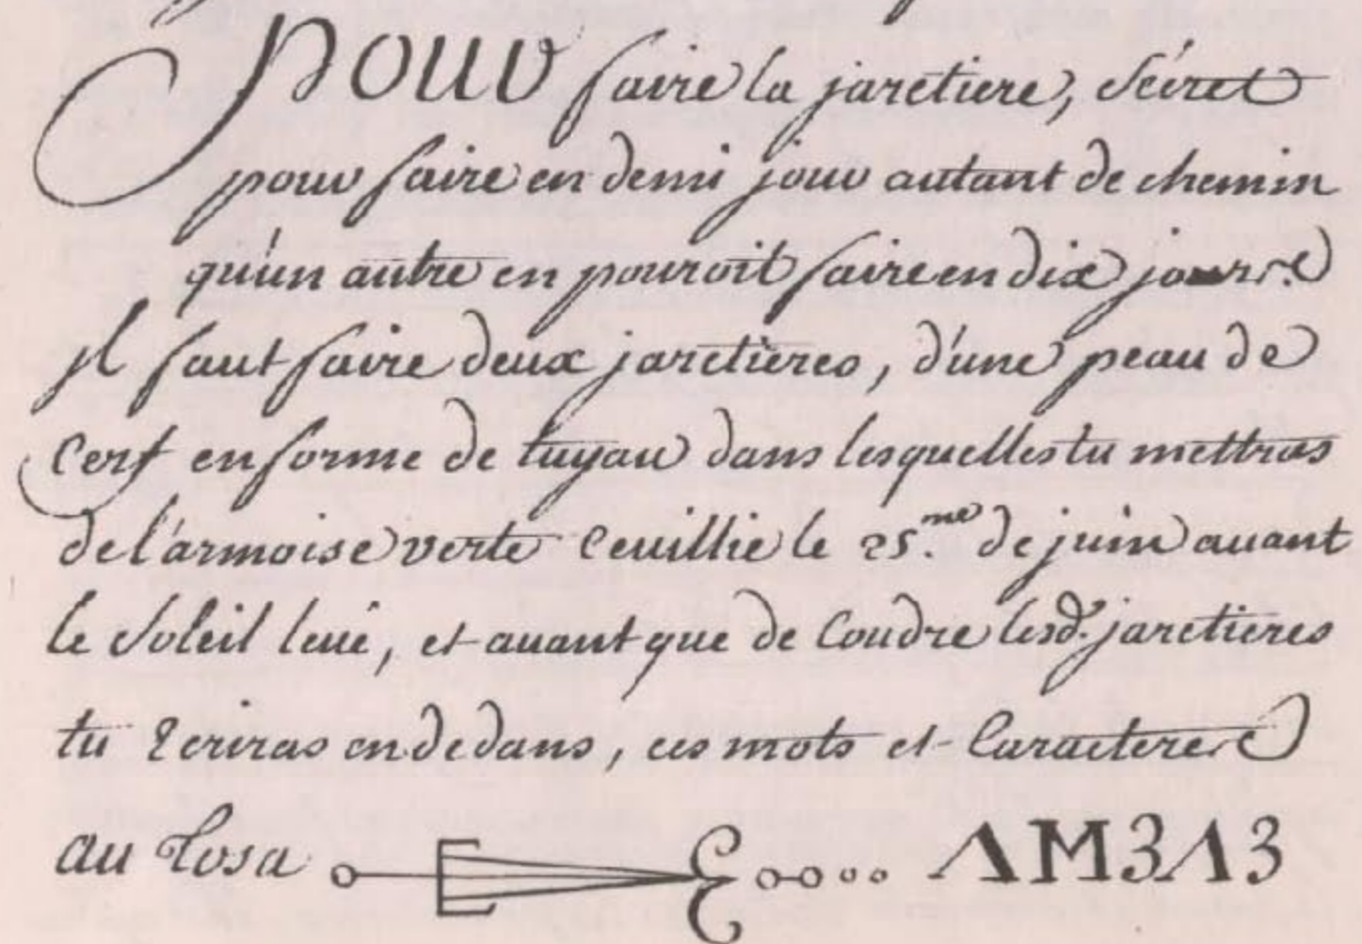 Pour faire la jaretiere, sécret
pour faire en demi jour autant de chemin
qu'un autre en pouroit faire en dix jours.
jl faut faire deux jaretières, d'une peau de
Cerf en forme de tuyau dans lesquelles tu mettras
de l'armoise verte Ceuillie le 25.me de juin auant
le soleil leué, et auant que de Coudre lesd. jaretieres
tu Ecriras en dedans, ces mots et Caracteres
au Rosa AM3A3